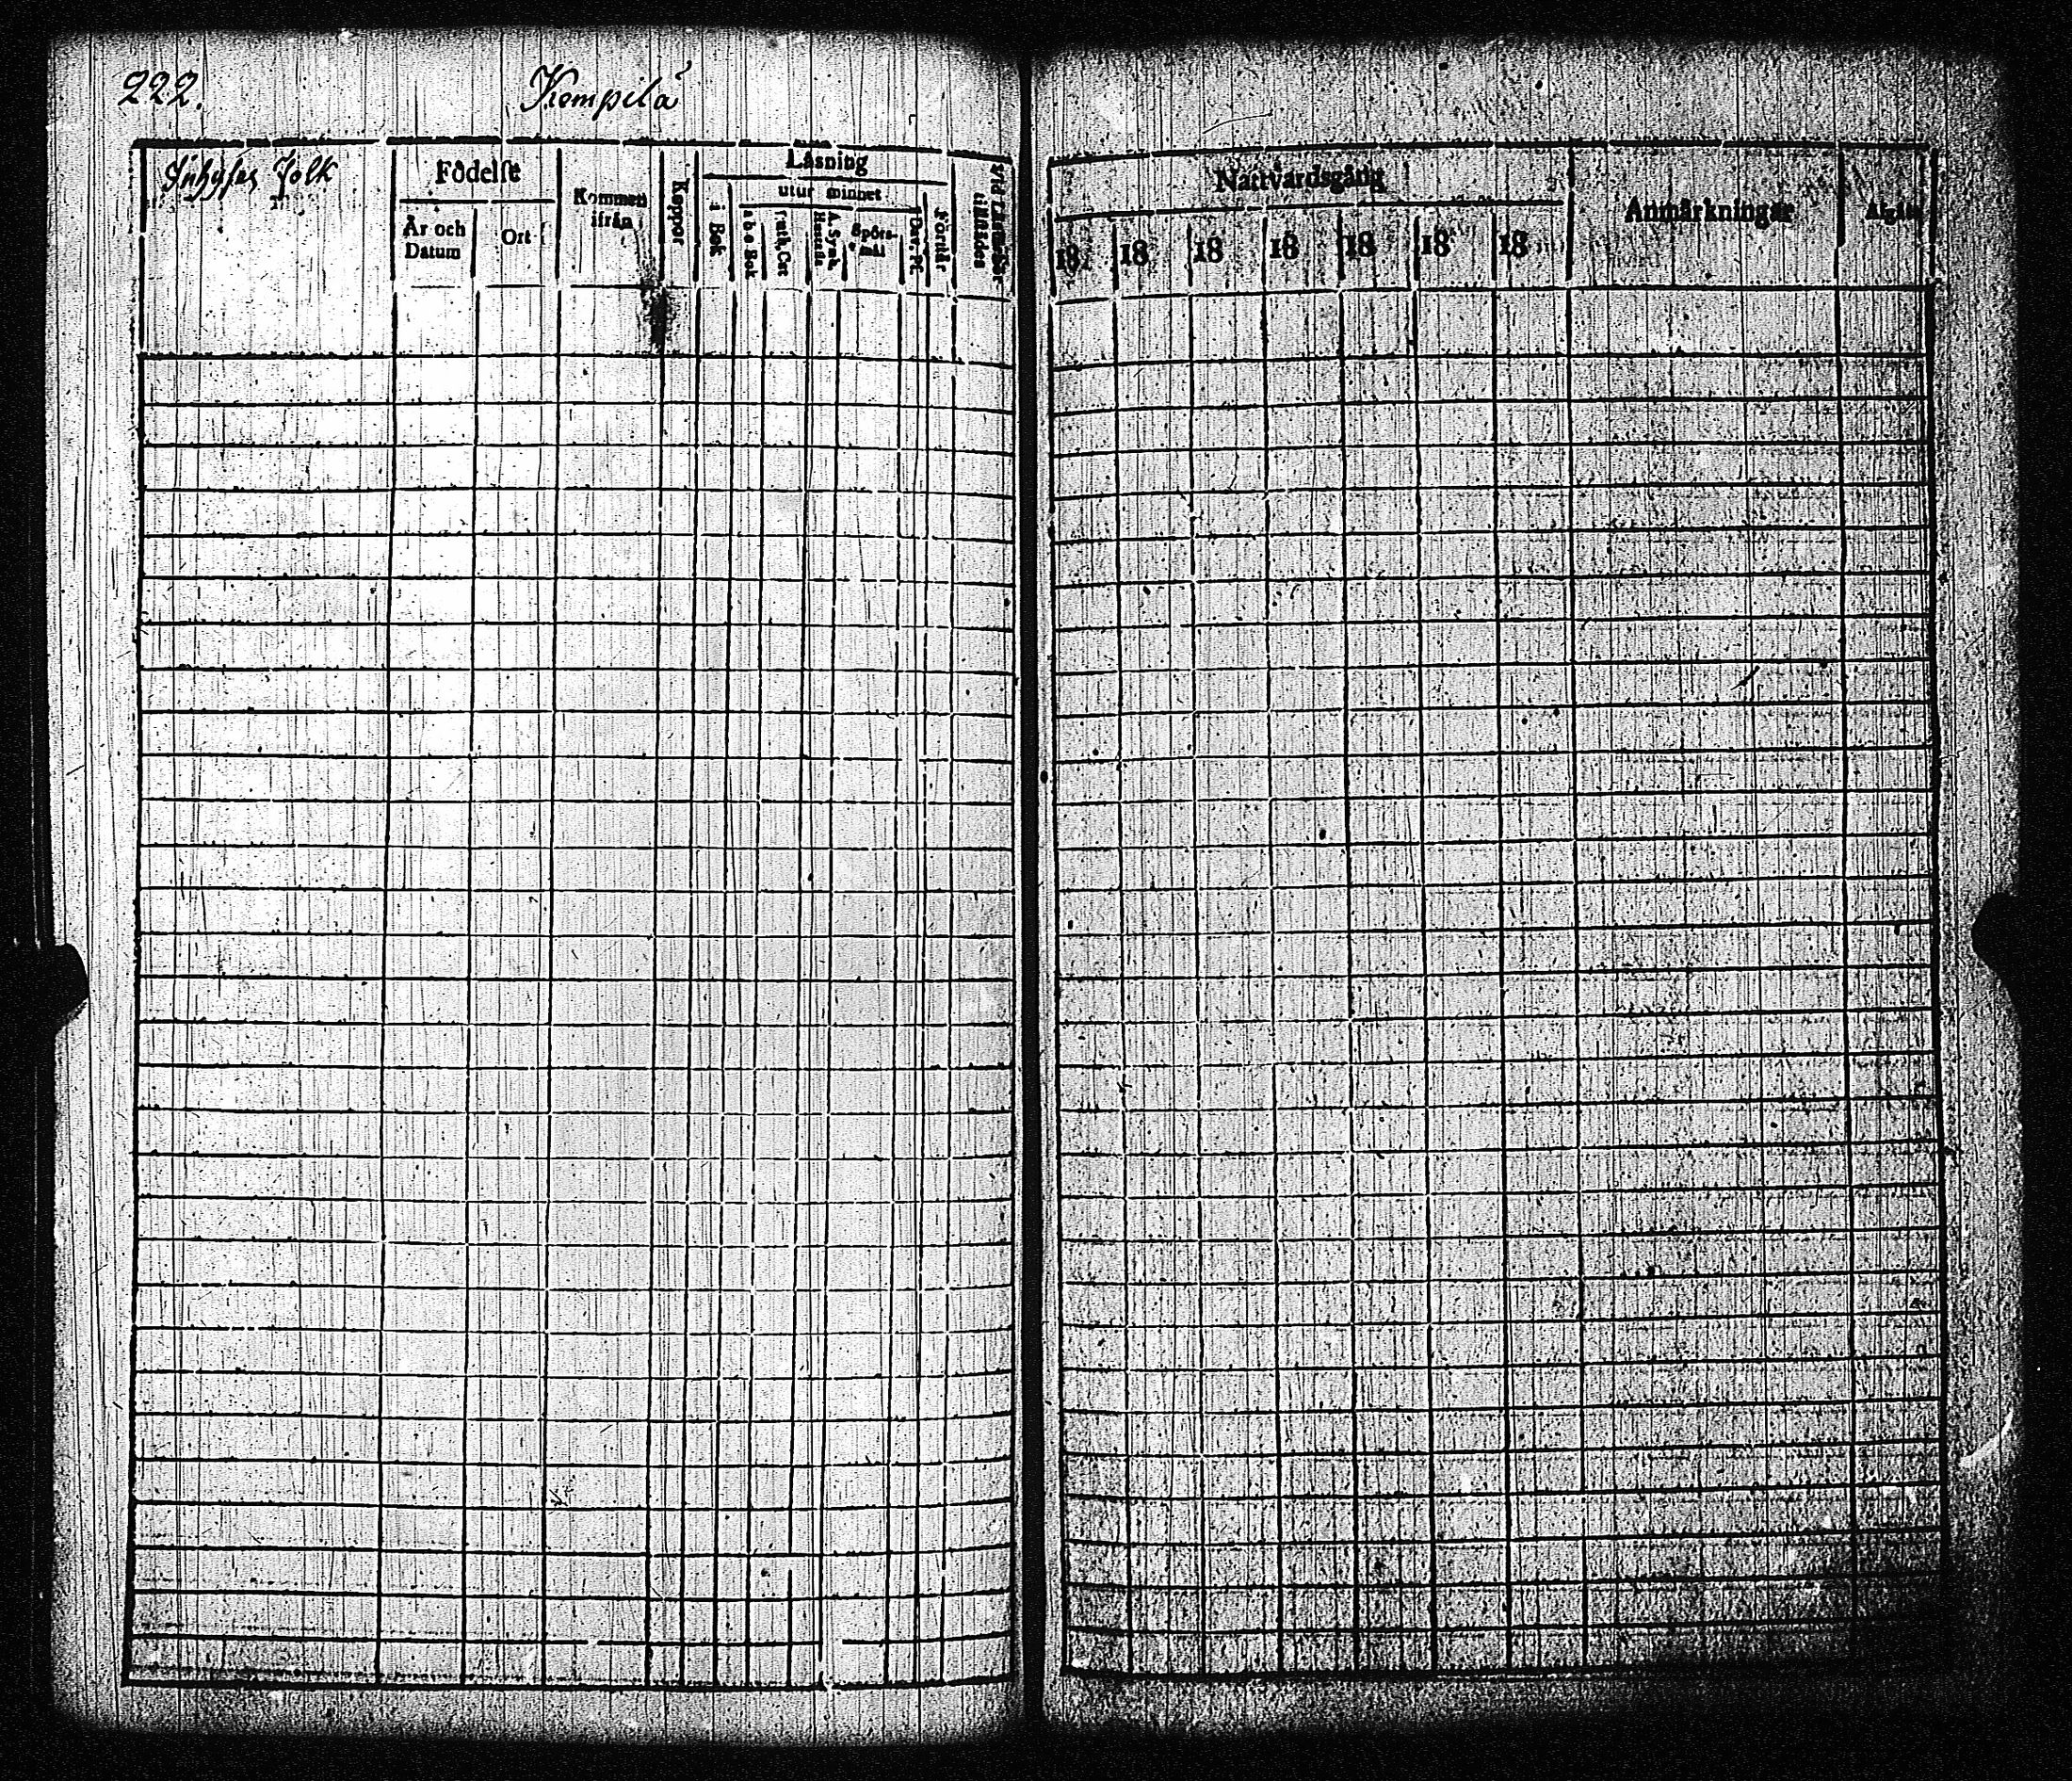 222.
Kempilä
Inhyses Folk
Födelse
År och Datum
Ort
Kommen ifrån
Koppor
Läsning
utur minnet
i Bok
a b c Bok
Luth. Cat
A. Symb. Hustafla
Spörsmål
Dav. Ps
Förstår
Nattvardsgång
18 18 18 18 18 18 18
Anmärkningar